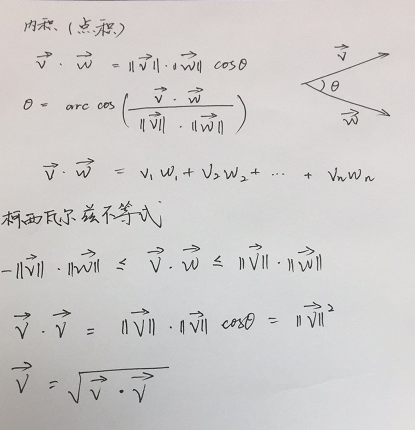 内积（点积）
v⃗ · w⃗ = ||v⃗|| · ||w⃗|| cosθ
v⃗
θ
w⃗
θ = arc cos( v⃗ · w⃗ / ||v⃗|| · ||w⃗|| )
v⃗ · w⃗ = v₁w₁ + v₂w₂ + ··· + vₙwₙ
柯西瓦尔兹不等式
-||v⃗|| · ||w⃗|| ≤ v⃗ · w⃗ ≤ ||v⃗|| · ||w⃗||
v⃗ · v⃗ = ||v⃗|| · ||v⃗|| cosθ = ||v⃗||²
v⃗ = √(v⃗ · v⃗)